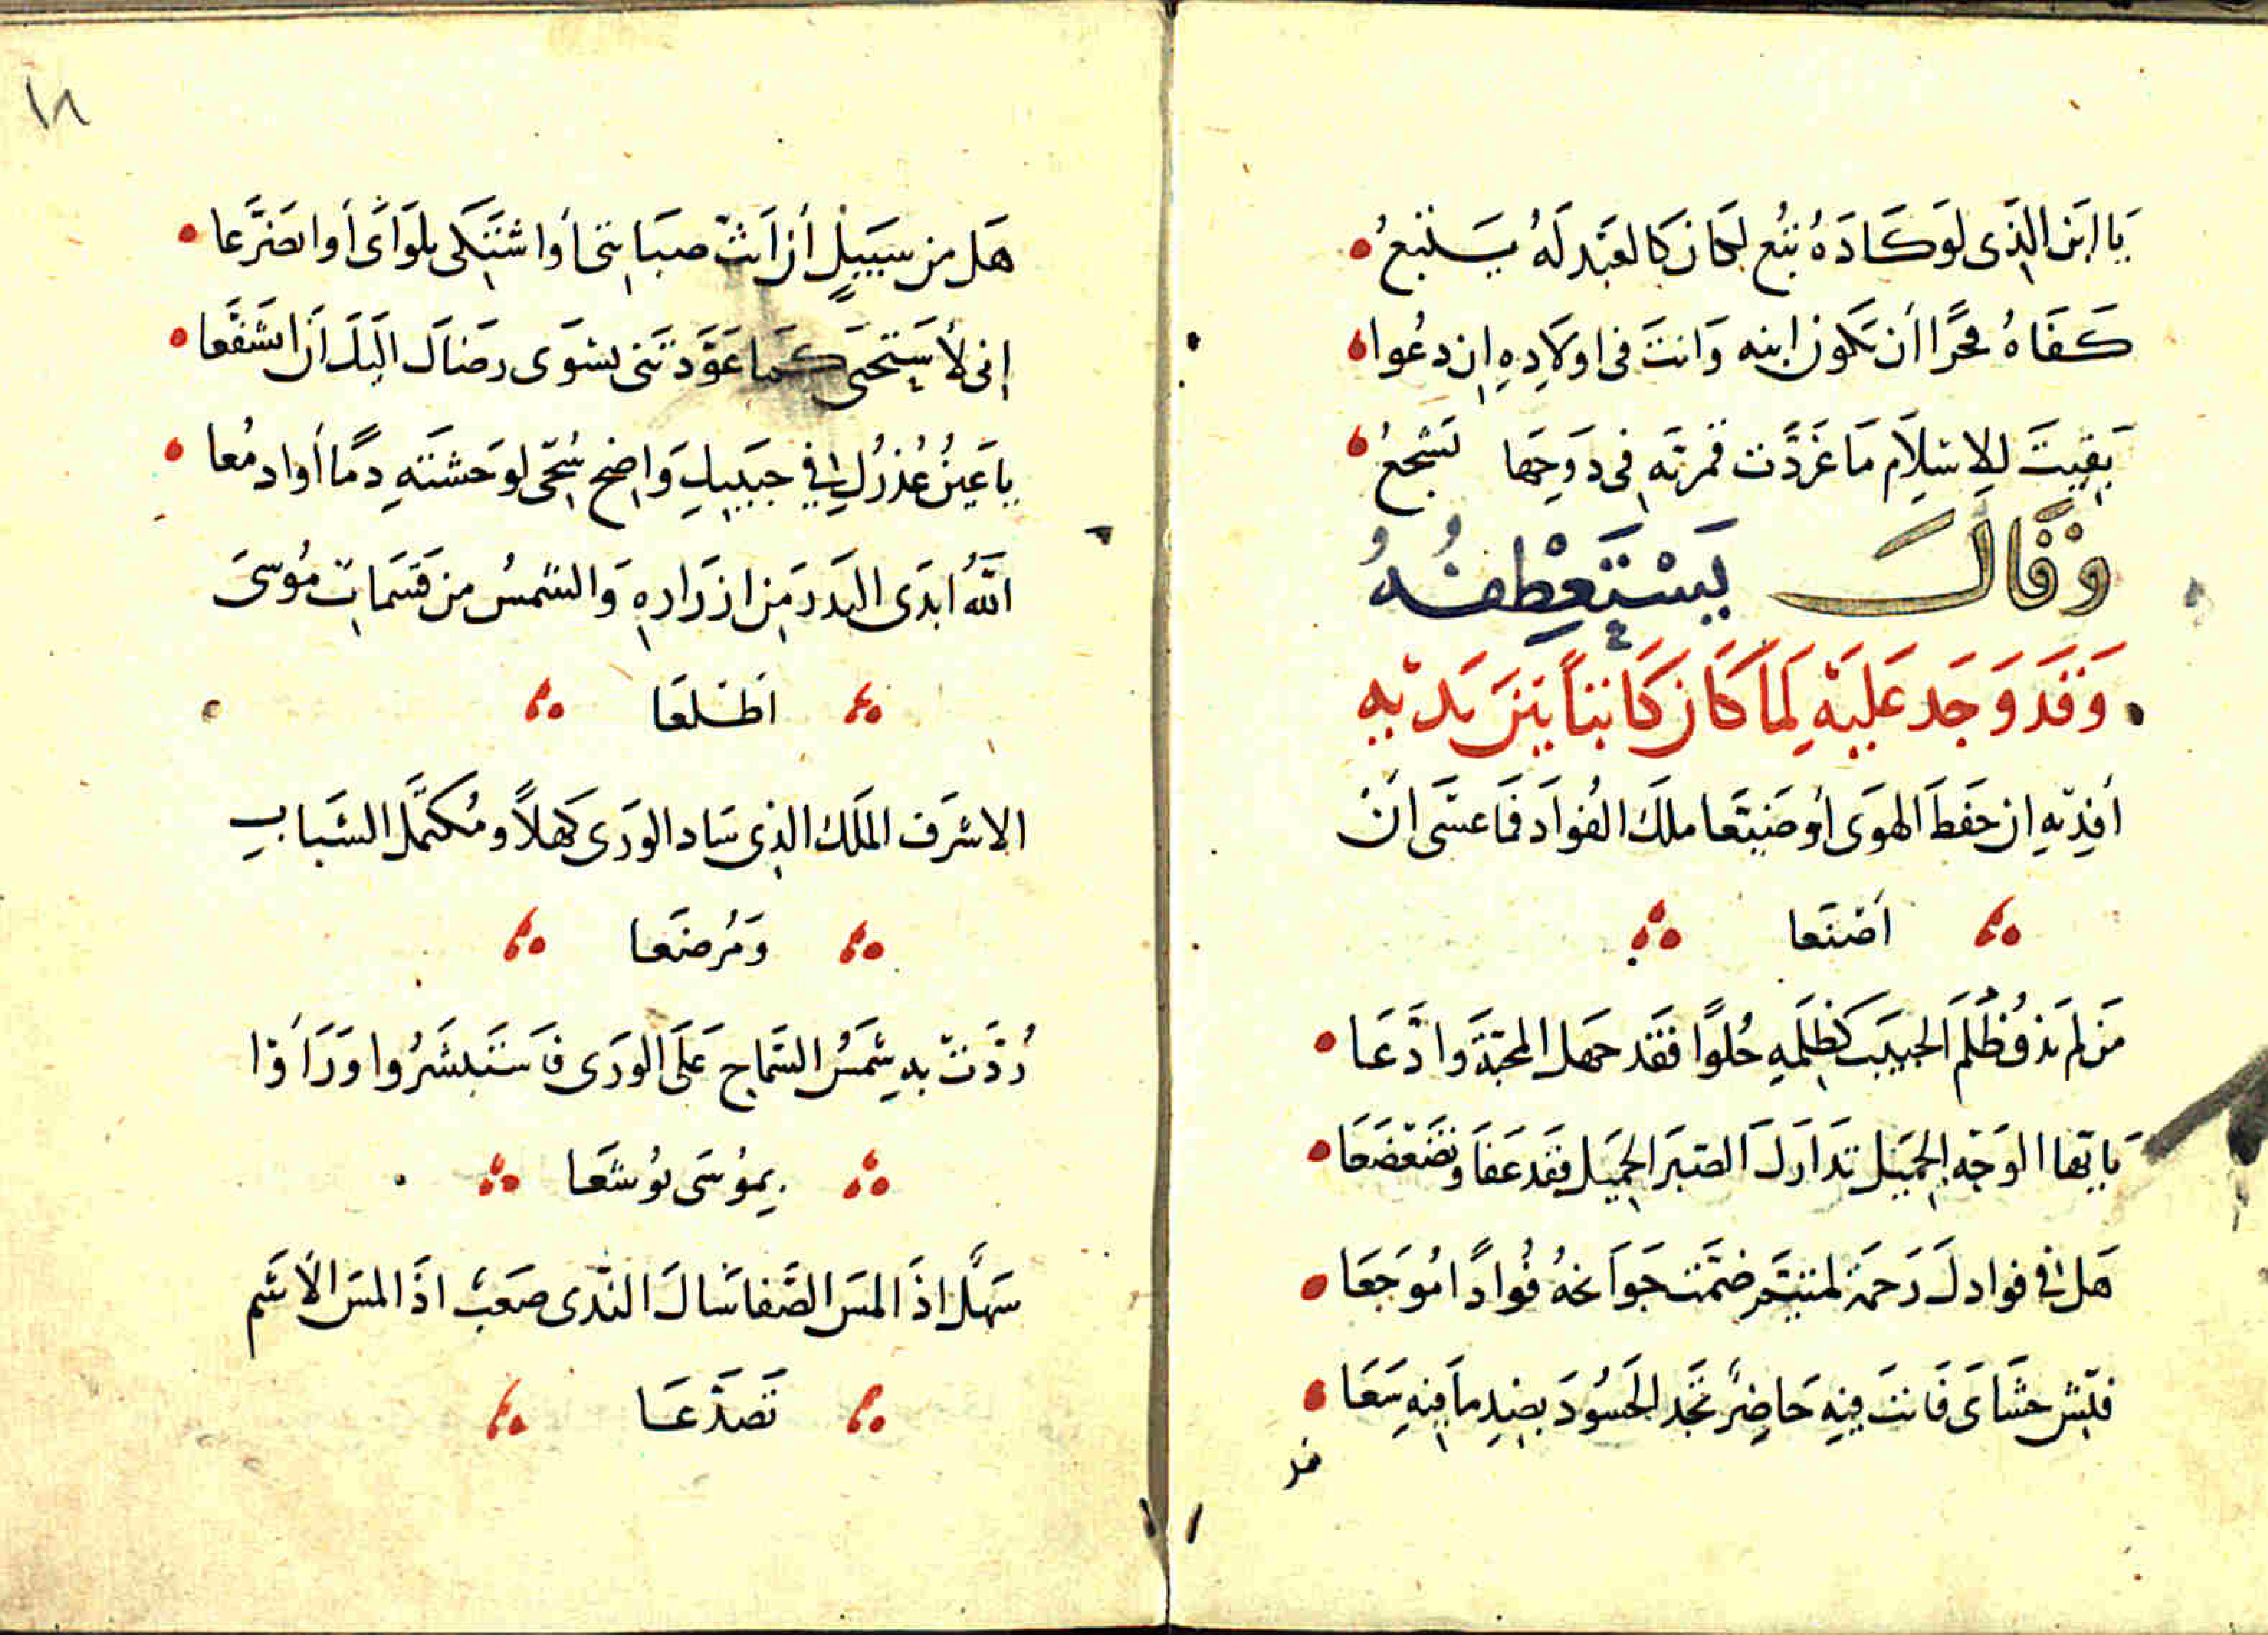 يَا ابنَ الذِّى لَو كَادَهُ تبُّع لكان كالعَبْد لَهُ يَسْتتبعُ
كَفَاهُ فخرًا أن تكون ابنه وَانتَ فى اولَادِهِ إن دعُوا
بَقيِتَ للإسْلَام مَا غَرَّدَت قمرتَه فى دَوحهَا تسْجعُ
وقَالَ يَسْتَعْطِفُهُ
وَقَد وَجَد عَليَهِ لَمَا كَان كَاتبًا بَيْنَ يَدَيْهِ
أفدِيهِ ان حَفظَ الهوَى أو ضَيعَا ملكَ الفُوادَ فمَا عسَى انْ
أصْنَعَا
مَن لَم يَذق ظُلْمَ الحبيَب كظلمهِ حُلوًا فقَد جَهل المحبَّة وادَّعَا
يَا ايّها الوَجْه الجميَل تدَارَك الصّبرَ الجميَل فقَد عَفَا وتضَعْضَعَا
هَل فى فوادك رَحمَة لمتيَّم ضمَّت جَوَانحهُ فُوادًا مُوجَعَا
فتّش حشَاىَ فَانتَ فيِهِ حَاضِرٌ تجَد الحَسُودَ بضِدِ مَا فيهِ سَعَا
١٨
هَل من سَبيلٍ أن أبثّ صبَابتى أوا شتَكى بلوَاىَ أو اتضرَّعا
إنى لأسَتحيى كمَا عَوَّدتَنى بسوَى رضَاكَ اليَكَ أن اتشَفَّعا
يا عَينُ عُذرُكِ فى حبَيبكِ وَاضح سُحّى لوَحشتَهِ دمًا أو ادمُعا
اللهُ ابدَى البَدرَ مِن ازرَارهِ وَالشّمسُ من قسَماتِ مُوسىَ
اطلعَا
الاشرَف الملَك الذِى سَاد الورَى كَهلاً ومُكتمَل الشَباب
وَمُرضَعا
رُدَّت بهِ شمسُ السّماح عَلَى الورَى فَاستَبشَرُوا وَرَأوا
بِمُوسَى يُوشعَا
سَهَلٌ اذَا لمَس الصَّفا سَال النَّدى صَعبٌ اذَا لمَس الأشَم
تَصَدَّعَا